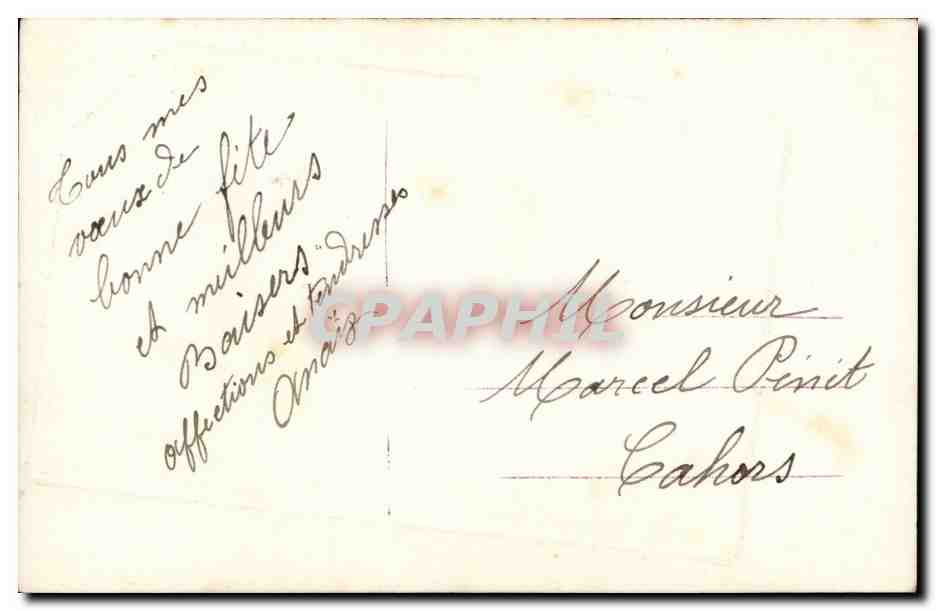 Tous mes
vœux de
bonne fête
et meilleurs
Baisers
affections et tendresses
Anaïs
Monsieur
Marcel Pinit
Cahors
CPAPHIL